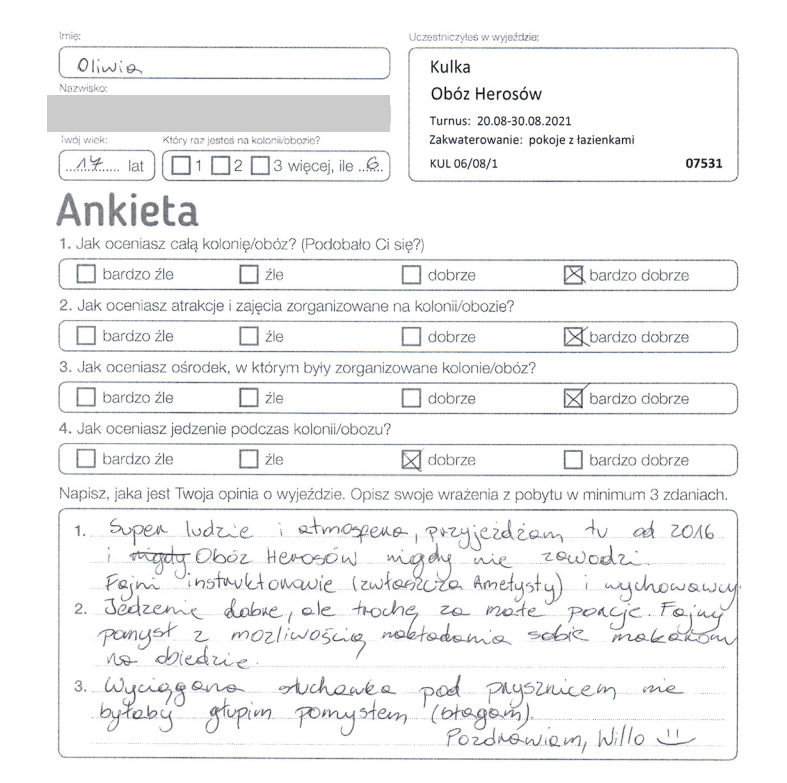 Imię:
Oliwia
Nazwisko:
Twój wiek:
17 lat
Który raz jesteś na kolonii/obozie?
1 2 3 więcej, ile 6
Uczestniczyłeś w wyjeździe:
Kulka
Obóz Herosów
Turnus: 20.08-30.08.2021
Zakwaterowanie: pokoje z łazienkami
KUL 06/08/1 07531
Ankieta
1. Jak oceniasz całą kolonię/obóz? (Podobało Ci się?)
bardzo źle źle dobrze bardzo dobrze
2. Jak oceniasz atrakcje i zajęcia zorganizowane na kolonii/obozie?
bardzo źle źle dobrze bardzo dobrze
3. Jak oceniasz ośrodek, w którym były zorganizowane kolonie/obóz?
bardzo źle źle dobrze bardzo dobrze
4. Jak oceniasz jedzenie podczas kolonii/obozu?
bardzo źle źle dobrze bardzo dobrze
Napisz, jaka jest Twoja opinia o wyjeździe. Opisz swoje wrażenia z pobytu w minimum 3 zdaniach.
1. Super ludzie i atmosfera, przyjeżdżam tu od 2016
i nigdy Obóz Herosów nigdy nie zawodzi.
Fajni instruktorowie (zwłaszcza Ametysty) i wychowawcy.
2. Jedzenie dobre, ale trochę za małe porcje. Fajny
pomysł z możliwością nakładania sobie makaronu
na obiedzie.
3. Wyciągana słuchawka pod prysznicem nie
byłaby głupim pomysłem (błagam).
Pozdrawiam, Willo